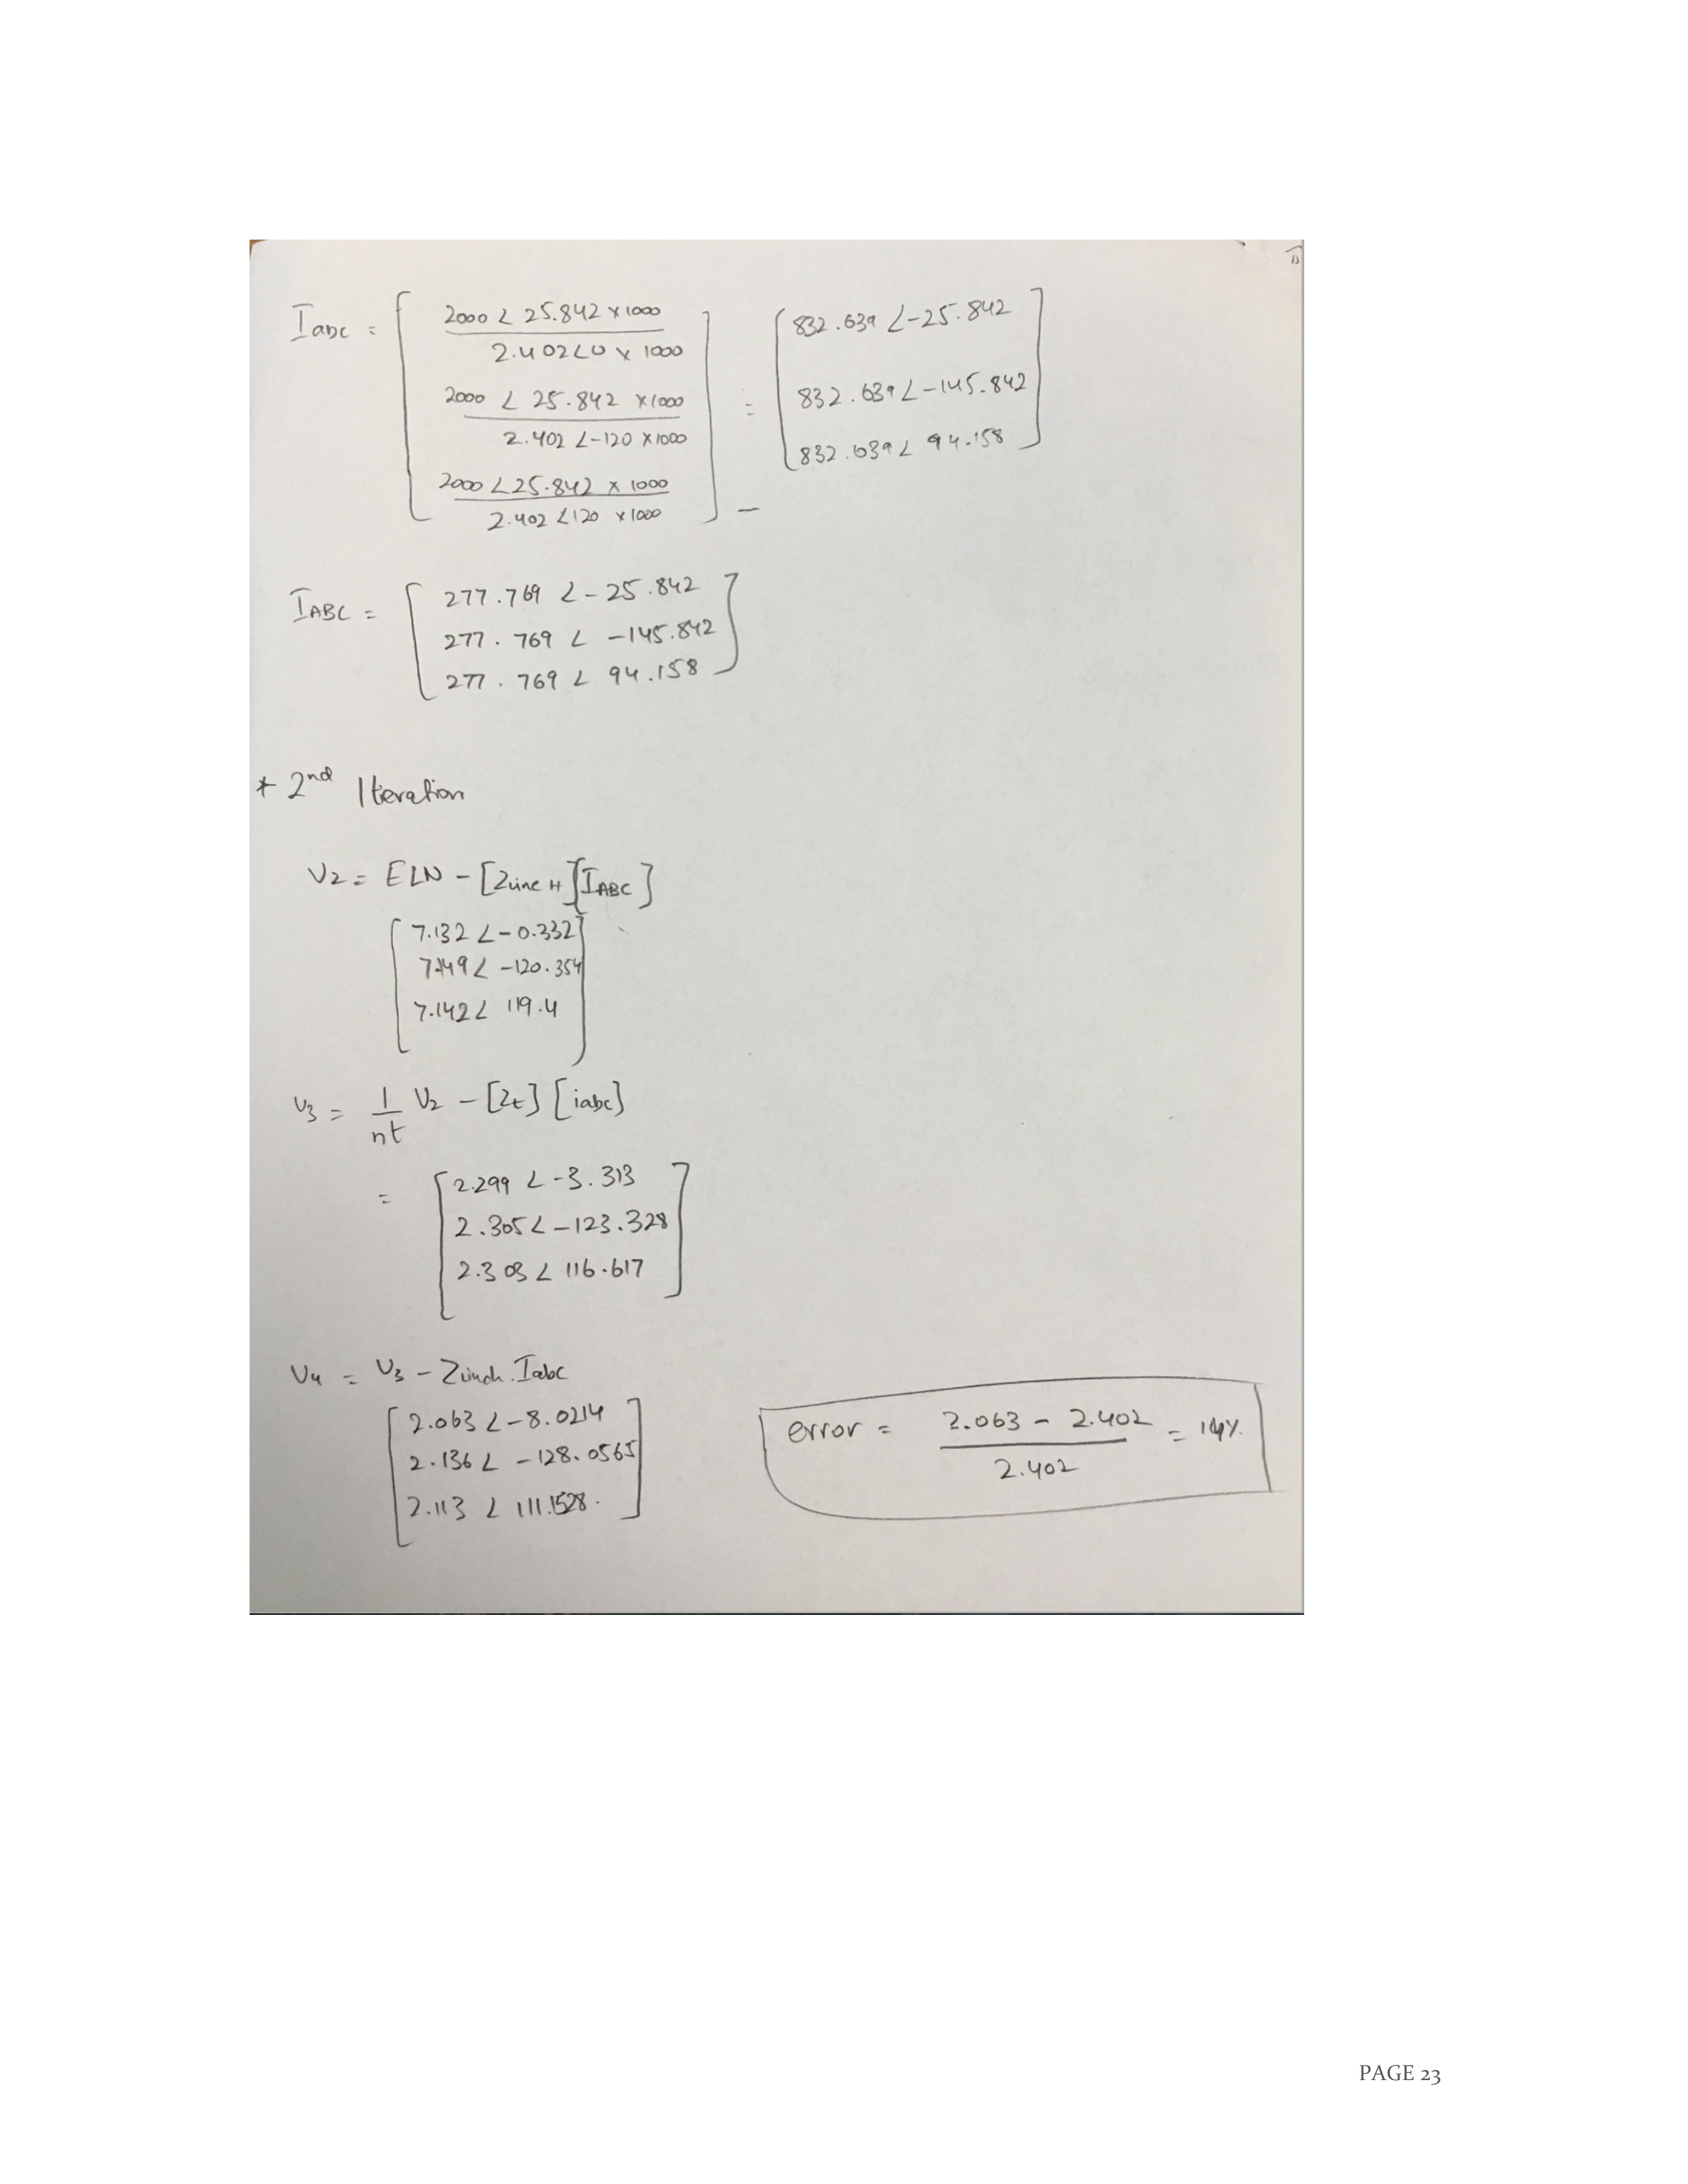 Iabc = [ 2000 ∠ 25.842 x 1000 / 2.402∠0 x 1000 ] = [ 832.639 ∠-25.842 ]
[ 2000 ∠ 25.842 x1000 / 2.402 ∠-120 x1000 ] [ 832.639 ∠-145.842 ]
[ 2000 ∠25.842 x 1000 / 2.402 ∠120 x1000 ] [ 832.639 ∠ 94.158 ]
IABC = [ 277.769 ∠-25.842 ]
[ 277.769 ∠ -145.842 ]
[ 277.769 ∠ 94.158 ]
* 2nd Iteration
V2 = ELN - [Zline H][IABC]
[ 7.132 ∠-0.332 ]
[ 7.149 ∠ -120.354 ]
[ 7.142 ∠ 119.4 ]
V3 = 1/nt V2 - [Zt] [iabc]
= [ 2.299 ∠ -3.313 ]
[ 2.305 ∠ -123.328 ]
[ 2.303 ∠ 116.617 ]
V4 = V3 - . Iabc
[ 2.063 ∠-8.0214 ]
[ 2.136 ∠ -128.0565 ]
[ 2.113 ∠ 111.1528. ]
error = 2.063 - 2.402 / 2.402 = 14%
PAGE 23